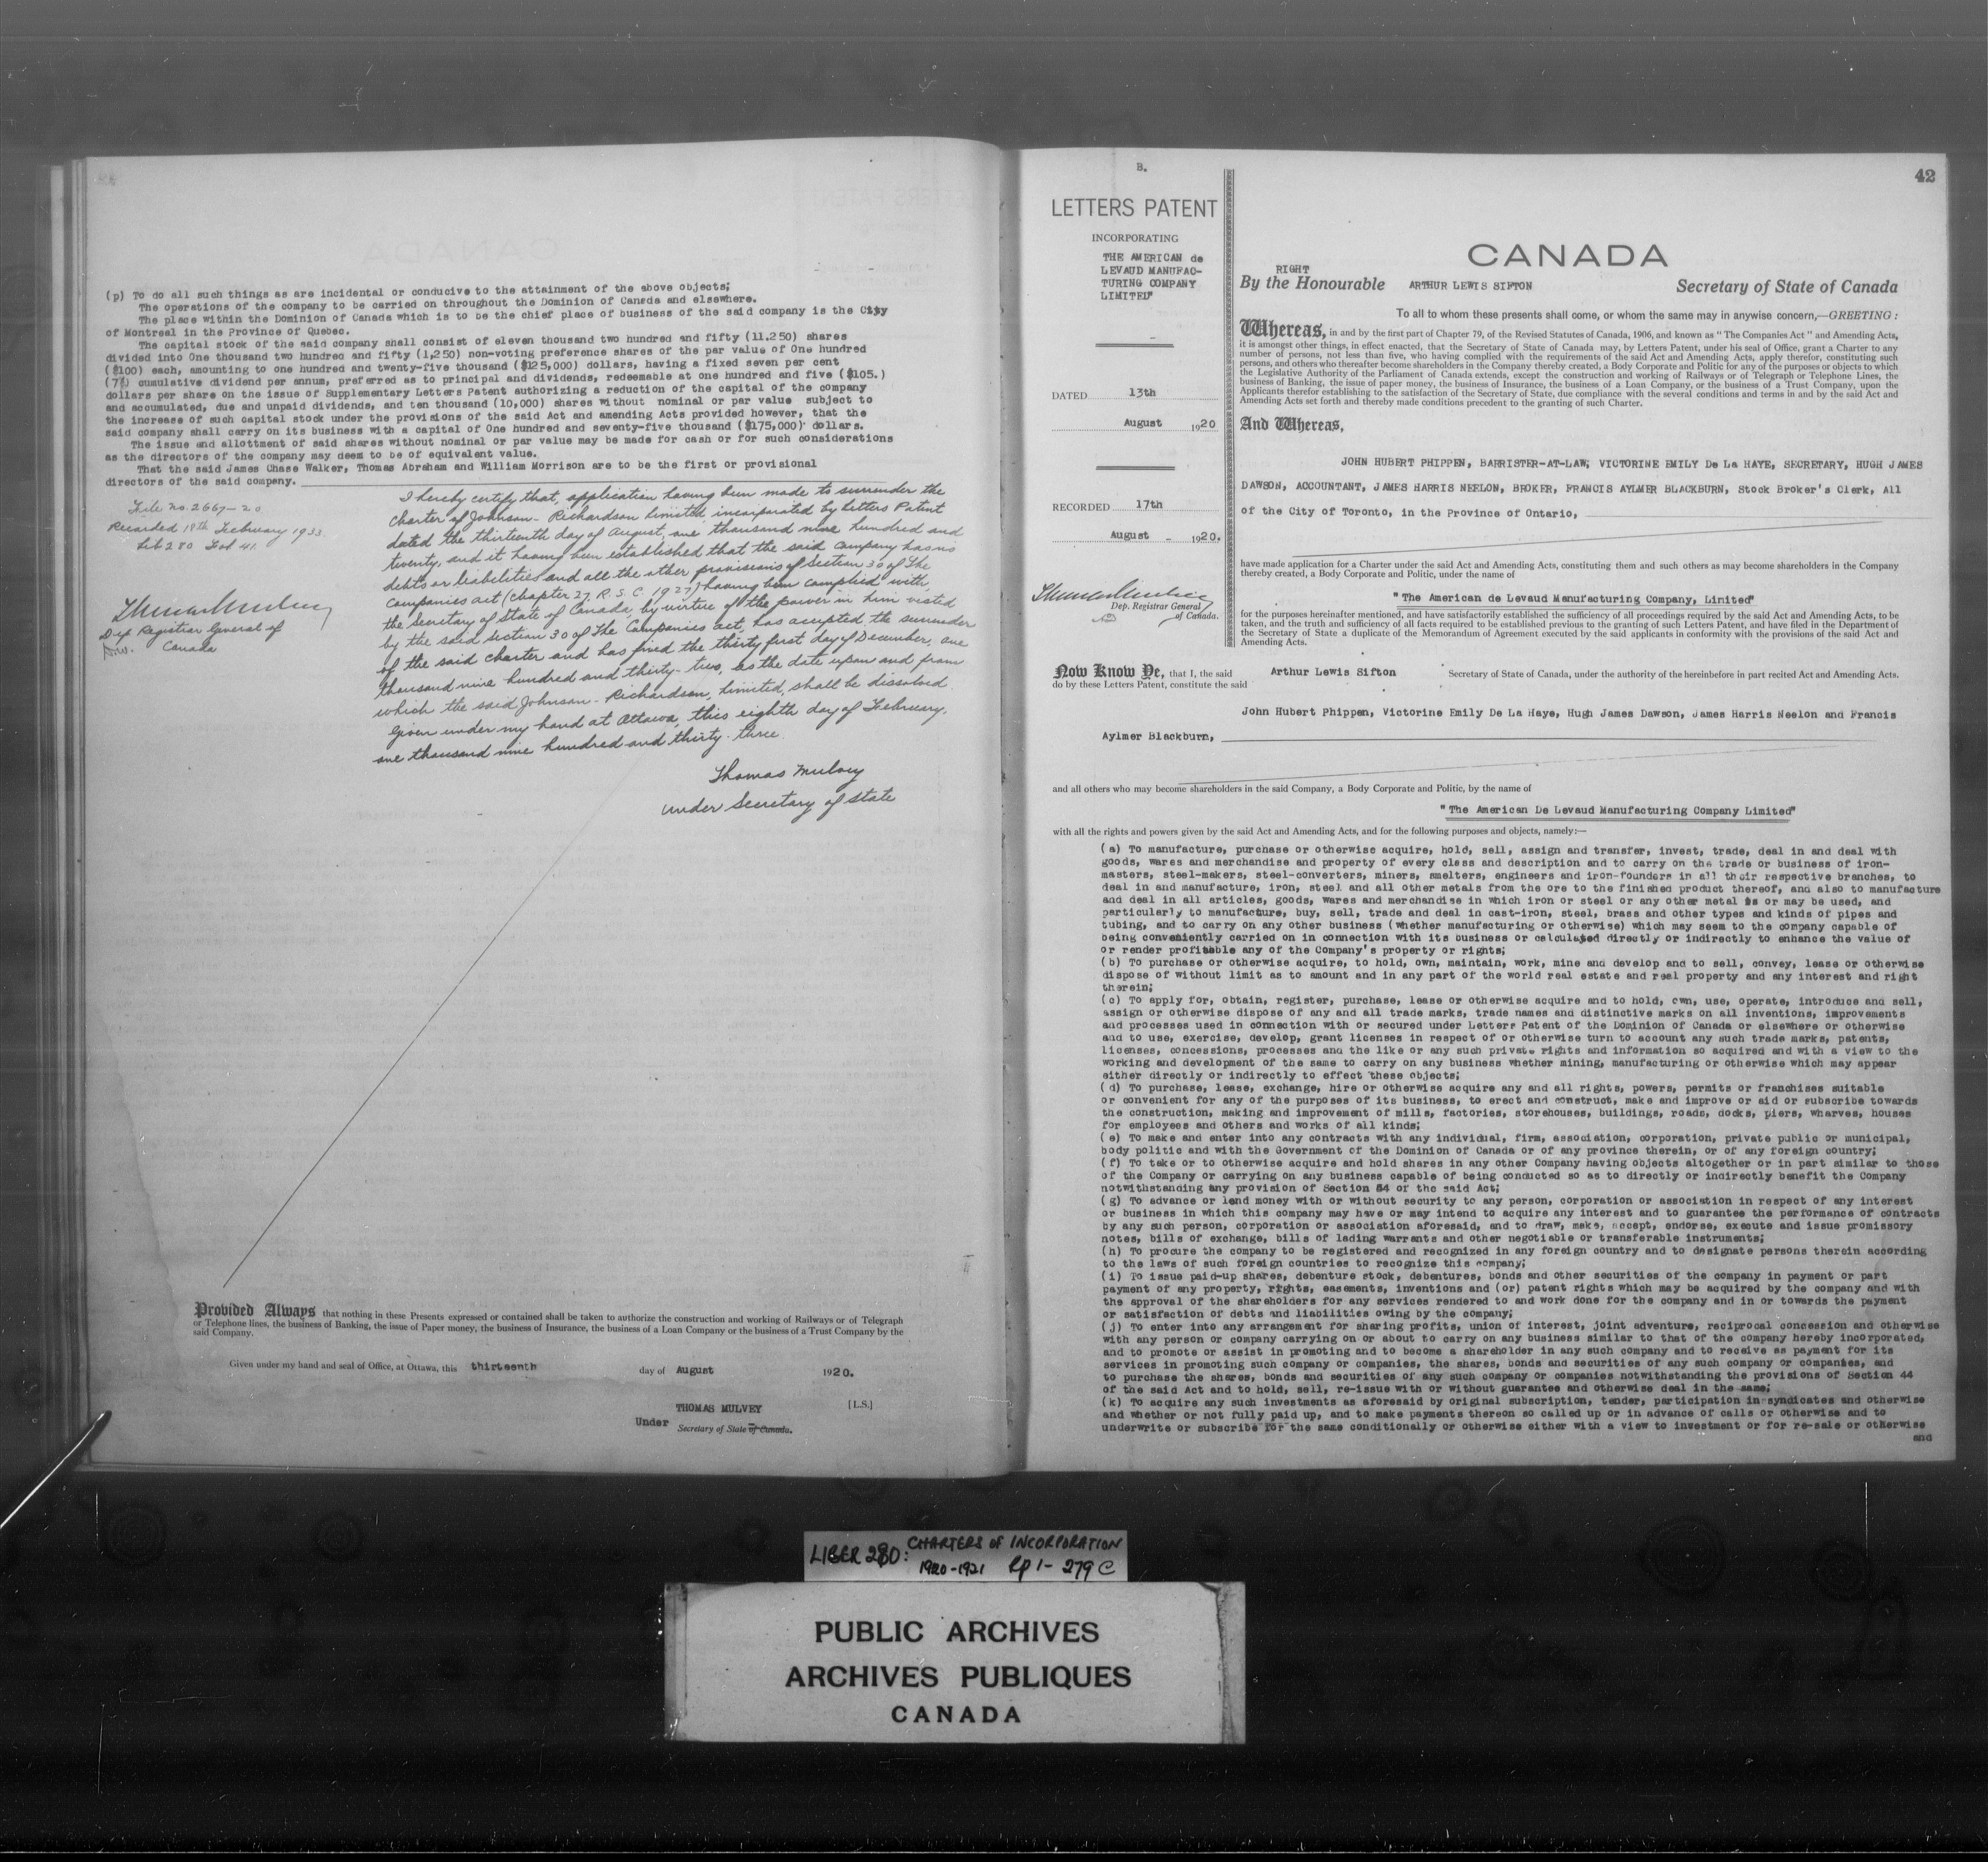 (p) To do all such things as are incidental or conducive to the attainment of the above objects;
The operations of the company to be carried on throughout the Dominion of Canada and elsewhere.
The place within the Dominion of Canada which is to be the chief place of business of the said company is the City
of Montreal in the Province of Quebec.
The capital stock of the said company shall consist of eleven thousand two hundred and fifty (11.250) shares
divided into One thousand two hundred and fifty (1,250) non-voting preference shares of the par value of One hundred
($100) each, amounting to one hundred and twenty-five thousand ($125,000) dollars, having a fixed seven per cent
(7%) cumulative dividend per annum, preferred as to principal and dividends, redeemable at one hundred and five ($105.)
dollars per share on the issue of Supplementary Letters Patent authorizing a reduction of the capital of the company
and accumulated, due and unpaid dividends, and ten thousand (10,000) shares without nominal or par value subject to
the increase of such capital stock under the provisions of the said Act and amending Acts provided however, that the
said company shall carry on its business with a capital of One hundred and seventy-five thousand ($175,000) dollars.
The issue and allotment of said shares without nominal or par value may be made for cash or for such considerations
as the directors of the company may deem to be of equivalent value.
That the said James Chase Walker, Thomas Abraham and William Morrison are to be the first or provisional
directors of the said company.
File no. 2667-20
Recorded 18th February 1933
Lib 280 Fol 41.
Thomas Mulvey
Dep Registrar General of
Canada
I hereby certify that, application having been made to surrender the
charter of Johnson-Richardson limited, incorporated by Letters Patent
dated the thirteenth day of August, one thousand nine hundred and
twenty, and it having been established that the said Company has no
debts or liabilities and all the other provisions of Section 30 of The
Companies act (chapter 27, R.S.C. 1927) having been complied with,
the Secretary of State of Canada, by virtue of the power in him vested
by the said section 30 of The Companies act, has accepted the surrender
of the said charter and has fixed the thirty first day of December, one
thousand nine hundred and thirty-two, as the date upon and from
which the said Johnson-Richardson, Limited, shall be dissolved.
Given under my hand at Ottawa, this eighth day of February,
one thousand nine hundred and thirty-three.
Thomas Mulvey
under Secretary of state
Provided Always that nothing in these Presents expressed or contained shall be taken to authorize the construction and working of Railways or of Telegraph
or Telephone lines, the business of Banking, the issue of Paper money, the business of Insurance, the business of a Loan Company or the business of a Trust Company by the
said Company.
Given under my hand and seal of Office, at Ottawa, this thirteenth day of August 1920.
THOMAS MULVEY [L.S.]
Under Secretary of State of Canada.
B.
42
LETTERS PATENT
INCORPORATING
THE AMERICAN de
LEVAUD MANUFAC-
TURING COMPANY
LIMITED"
DATED 13th
August 1920
RECORDED 17th
August 1920.
Thomas Mulvey
Dep. Registrar General
of Canada.
CANADA
RIGHT
By the Honourable ARTHUR LEWIS SIFTON Secretary of State of Canada
To all to whom these presents shall come, or whom the same may in anywise concern,—GREETING:
Whereas, in and by the first part of Chapter 79, of the Revised Statutes of Canada, 1906, and known as "The Companies Act" and Amending Acts,
it is amongst other things, in effect enacted, that the Secretary of State of Canada may, by Letters Patent, under his seal of Office, grant a Charter to any
number of persons, not less than five, who having complied with the requirements of the said Act and Amending Acts, apply therefor, constituting such
persons, and others who thereafter become shareholders in the Company thereby created, a Body Corporate and Politic for any of the purposes or objects to which
the Legislative Authority of the Parliament of Canada extends, except the construction and working of Railways or of Telegraph or Telephone Lines, the
business of Banking, the issue of paper money, the business of Insurance, the business of a Loan Company, or the business of a Trust Company, upon the
Applicants therefor establishing to the satisfaction of the Secretary of State, due compliance with the several conditions and terms in and by the said Act and
Amending Acts set forth and thereby made conditions precedent to the granting of such Charter.
And Whereas,
JOHN HUBERT PHIPPEN, BARRISTER-AT-LAW; VICTORINE EMILY De La HAYE, SECRETARY, HUGH JAMES
DAWSON, ACCOUNTANT, JAMES HARRIS NEELON, BROKER, FRANCIS AYLMER BLACKBURN, Stock Broker's Clerk, All
of the City of Toronto, in the Province of Ontario,
have made application for a Charter under the said Act and Amending Acts, constituting them and such others as may become shareholders in the Company
thereby created, a Body Corporate and Politic, under the name of
"The American de Levaud Manufacturing Company, Limited"
for the purposes hereinafter mentioned, and have satisfactorily established the sufficiency of all proceedings required by the said Act and Amending Acts, to be
taken, and the truth and sufficiency of all facts required to be established previous to the granting of such Letters Patent, and have filed in the Department of
the Secretary of State a duplicate of the Memorandum of Agreement executed by the said applicants in conformity with the provisions of the said Act and
Amending Acts.
Now Know Ye, that I, the said Arthur Lewis Sifton Secretary of State of Canada, under the authority of the hereinbefore in part recited Act and Amending Acts.
do by these Letters Patent, constitute the said
John Hubert Phippen, Victorine Emily De La Haye, Hugh James Dawson, James Harris Neelon and Francis
Aylmer Blackburn,
and all others who may become shareholders in the said Company, a Body Corporate and Politic, by the name of
"The American De Levaud Manufacturing Company Limited"
with all the rights and powers given by the said Act and Amending Acts, and for the following purposes and objects, namely:—
(a) To manufacture, purchase or otherwise acquire, hold, sell, assign and transfer, invest, trade, deal in and deal with
goods, wares and merchandise and property of every class and description and to carry on the trade or business of iron-
masters, steel-makers, steel-converters, miners, smelters, engineers and iron-founders in all their respective branches, to
deal in and manufacture, iron, steel and all other metals from the ore to the finished product thereof, and also to manufacture
and deal in all articles, goods, wares and merchandise in which iron or steel or any other metal is or may be used, and
particularly to manufacture, buy, sell, trade and deal in cast-iron, steel, brass and other types and kinds of pipes and
tubing, and to carry on any other business (whether manufacturing or otherwise) which may seem to the company capable of
being conveniently carried on in connection with its business or calculated directly or indirectly to enhance the value of
or render profitable any of the Company's property or rights;
(b) To purchase or otherwise acquire, to hold, own, maintain, work, mine and develop and to sell, convey, lease or otherwise
dispose of without limit as to amount and in any part of the world real estate and real property and any interest and right
therein;
(c) To apply for, obtain, register, purchase, lease or otherwise acquire and to hold, own, use, operate, introduce and sell,
assign or otherwise dispose of any and all trade marks, trade names and distinctive marks on all inventions, improvements
and processes used in connection with or secured under Letters Patent of the Dominion of Canada or elsewhere or otherwise
and to use, exercise, develop, grant licenses in respect of or otherwise turn to account any such trade marks, patents,
licenses, concessions, processes and the like or any such private rights and information so acquired and with a view to the
working and development of the same to carry on any business whether mining, manufacturing or otherwise which may appear
either directly or indirectly to effect these objects;
(d) To purchase, lease, exchange, hire or otherwise acquire any and all rights, powers, permits or franchises suitable
or convenient for any of the purposes of its business, to erect and construct, make and improve or aid or subscribe towards
the construction, making and improvement of mills, factories, storehouses, buildings, roads, docks, piers, wharves, houses
for employees and others and works of all kinds;
(e) To make and enter into any contracts with any individual, firm, association, corporation, private public or municipal,
body politic and with the Government of the Dominion of Canada or of any province therein, or of any foreign country;
(f) To take or to otherwise acquire and hold shares in any other Company having objects altogether or in part similar to those
of the Company or carrying on any business capable of being conducted so as to directly or indirectly benefit the Company
notwithstanding any provision of Section 44 of the said Act;
(g) To advance or lend money with or without security to any person, corporation or association in respect of any interest
or business in which this company may have or may intend to acquire any interest and to guarantee the performance of contracts
by any such person, corporation or association aforesaid, and to draw, make, accept, endorse, execute and issue promissory
notes, bills of exchange, bills of lading warrants and other negotiable or transferable instruments;
(h) To procure the company to be registered and recognized in any foreign country and to designate persons therein according
to the laws of such foreign countries to recognize this company;
(i) To issue paid-up shares, debenture stock, debentures, bonds and other securities of the company in payment or part
payment of any property, rights, easements, inventions and (or) patent rights which may be acquired by the company and with
the approval of the shareholders for any services rendered to and work done for the company and in or towards the payment
or satisfaction of debts and liabilities owing by the company;
(j) To enter into any arrangement for sharing profits, union of interest, joint adventure, reciprocal concession and otherwise
with any person or company carrying on or about to carry on any business similar to that of the company hereby incorporated,
and to promote or assist in promoting and to become a shareholder in any such company and to receive as payment for its
services in promoting such company or companies, the shares, bonds and securities of any such company or companies, and
to purchase the shares, bonds and securities of any such company or companies notwithstanding the provisions of Section 44
of the said Act and to hold, sell, re-issue with or without guarantee and otherwise deal in the same;
(k) To acquire any such investments as aforesaid by original subscription, tender, participation in syndicates and otherwise
and whether or not fully paid up, and to make payments thereon so called up or in advance of calls or otherwise and to
underwrite or subscribe for the same conditionally or otherwise either with a view to investment or for re-sale or otherwise
and
LIBER 280: CHARTERS OF INCORPORATION
1920-1921 Rp 1-279 C
PUBLIC ARCHIVES
ARCHIVES PUBLIQUES
CANADA